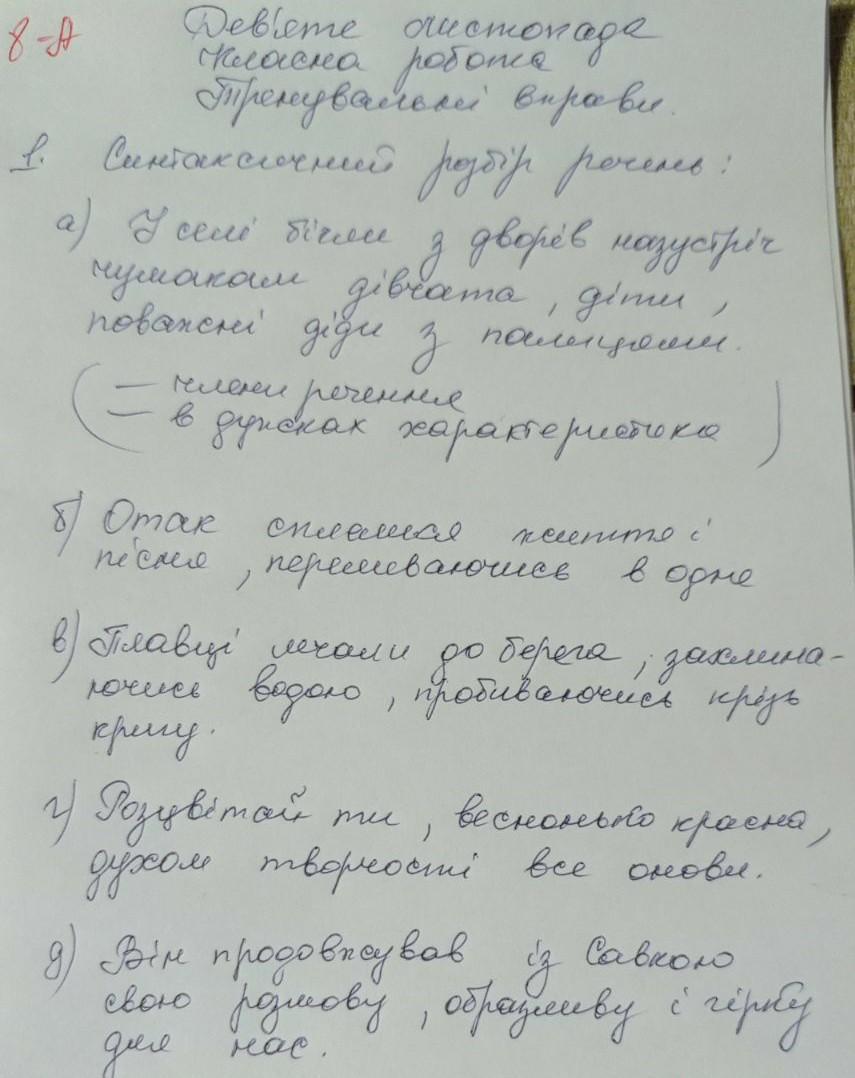 8-А
Дев'яте листопада
Класна робота
Тренувальні вправи.
1. Синтаксичний розбір речень:
а) У селі бігли з дворів назустріч
чумакам дівчата, діти,
поважні діди з палицями.
(— члени речення
— в дужках характеристика)
б) Отак сплелися життя і
пісня, переливаючись в одне
в) Плавці мчали до берега, захлина-
ючись водою, пробиваючись крізь
кригу.
г) Розцвітай ти, веснонько красна,
духом творчості все онови.
д) Він продовжував із Савкою
свою розмову, образливу і гірку
для нас.